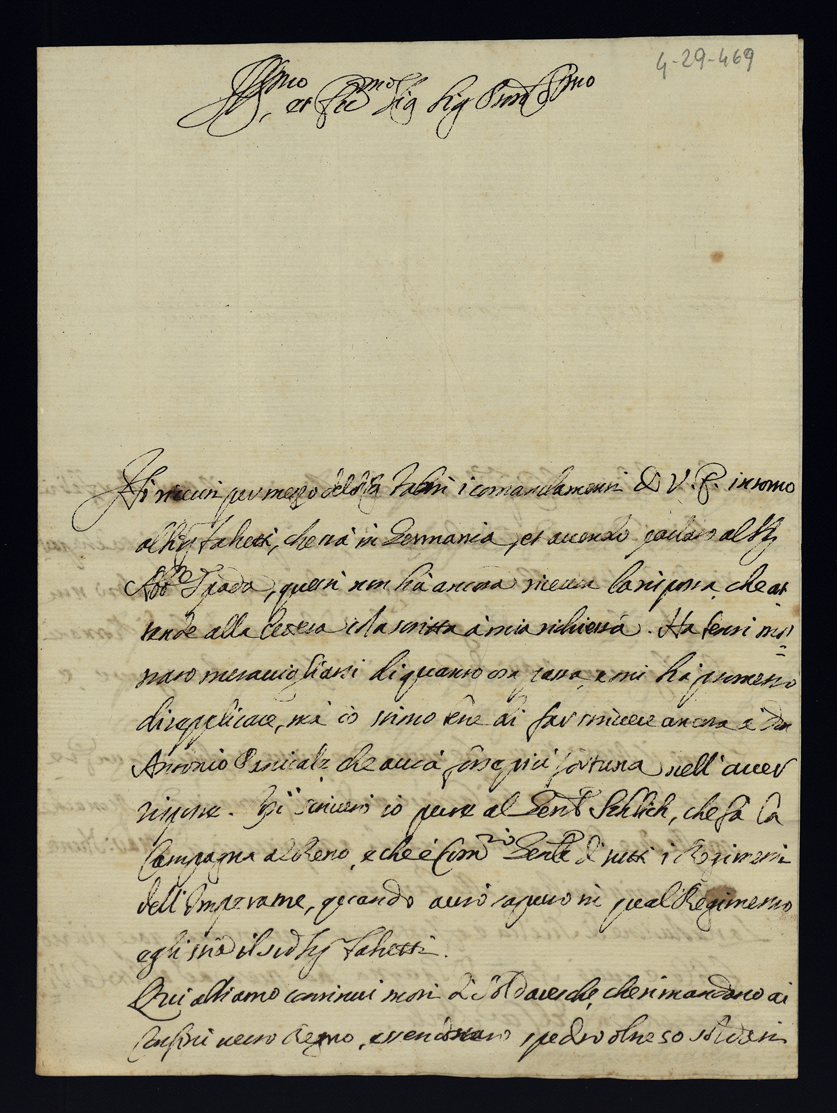 4-29-469
Ill.mo et Ecc.mo Sig. Sig. Pron. Pmo
Hi ricevei per mezo del Sig. Fabri i comandamenti di V. E. intorno
al Sig. Fahetti, che và in Germania, et avendo parlato al Sig.
Abb.te Spada, questi non hà ancora ricevuta la risposta che at
tende alla lettera da scritta à mia richiesta. Ha seco mos
trato meravigliarsi di quanto ora passa, e mi hà promesso
di repplicare, mà io stimo bene di far scrivere ancora a Dn
Antonio che avrà forse più fortuna nell'aver
risposta. scriverò io pure al Gen.le Schlich, che fà la
Campagna al Reno, e che è Com.rio Gen.le di tutti i Regimenti
dell'Imperante, quando avrò saputo in qual Regimento
egli stia il sud. Sig. Fahetti.
Qui abbiamo continui moti di Soldatesche, che si mandano ai
Confini verso Regno, essendo stato spedito oltre 50 soldati